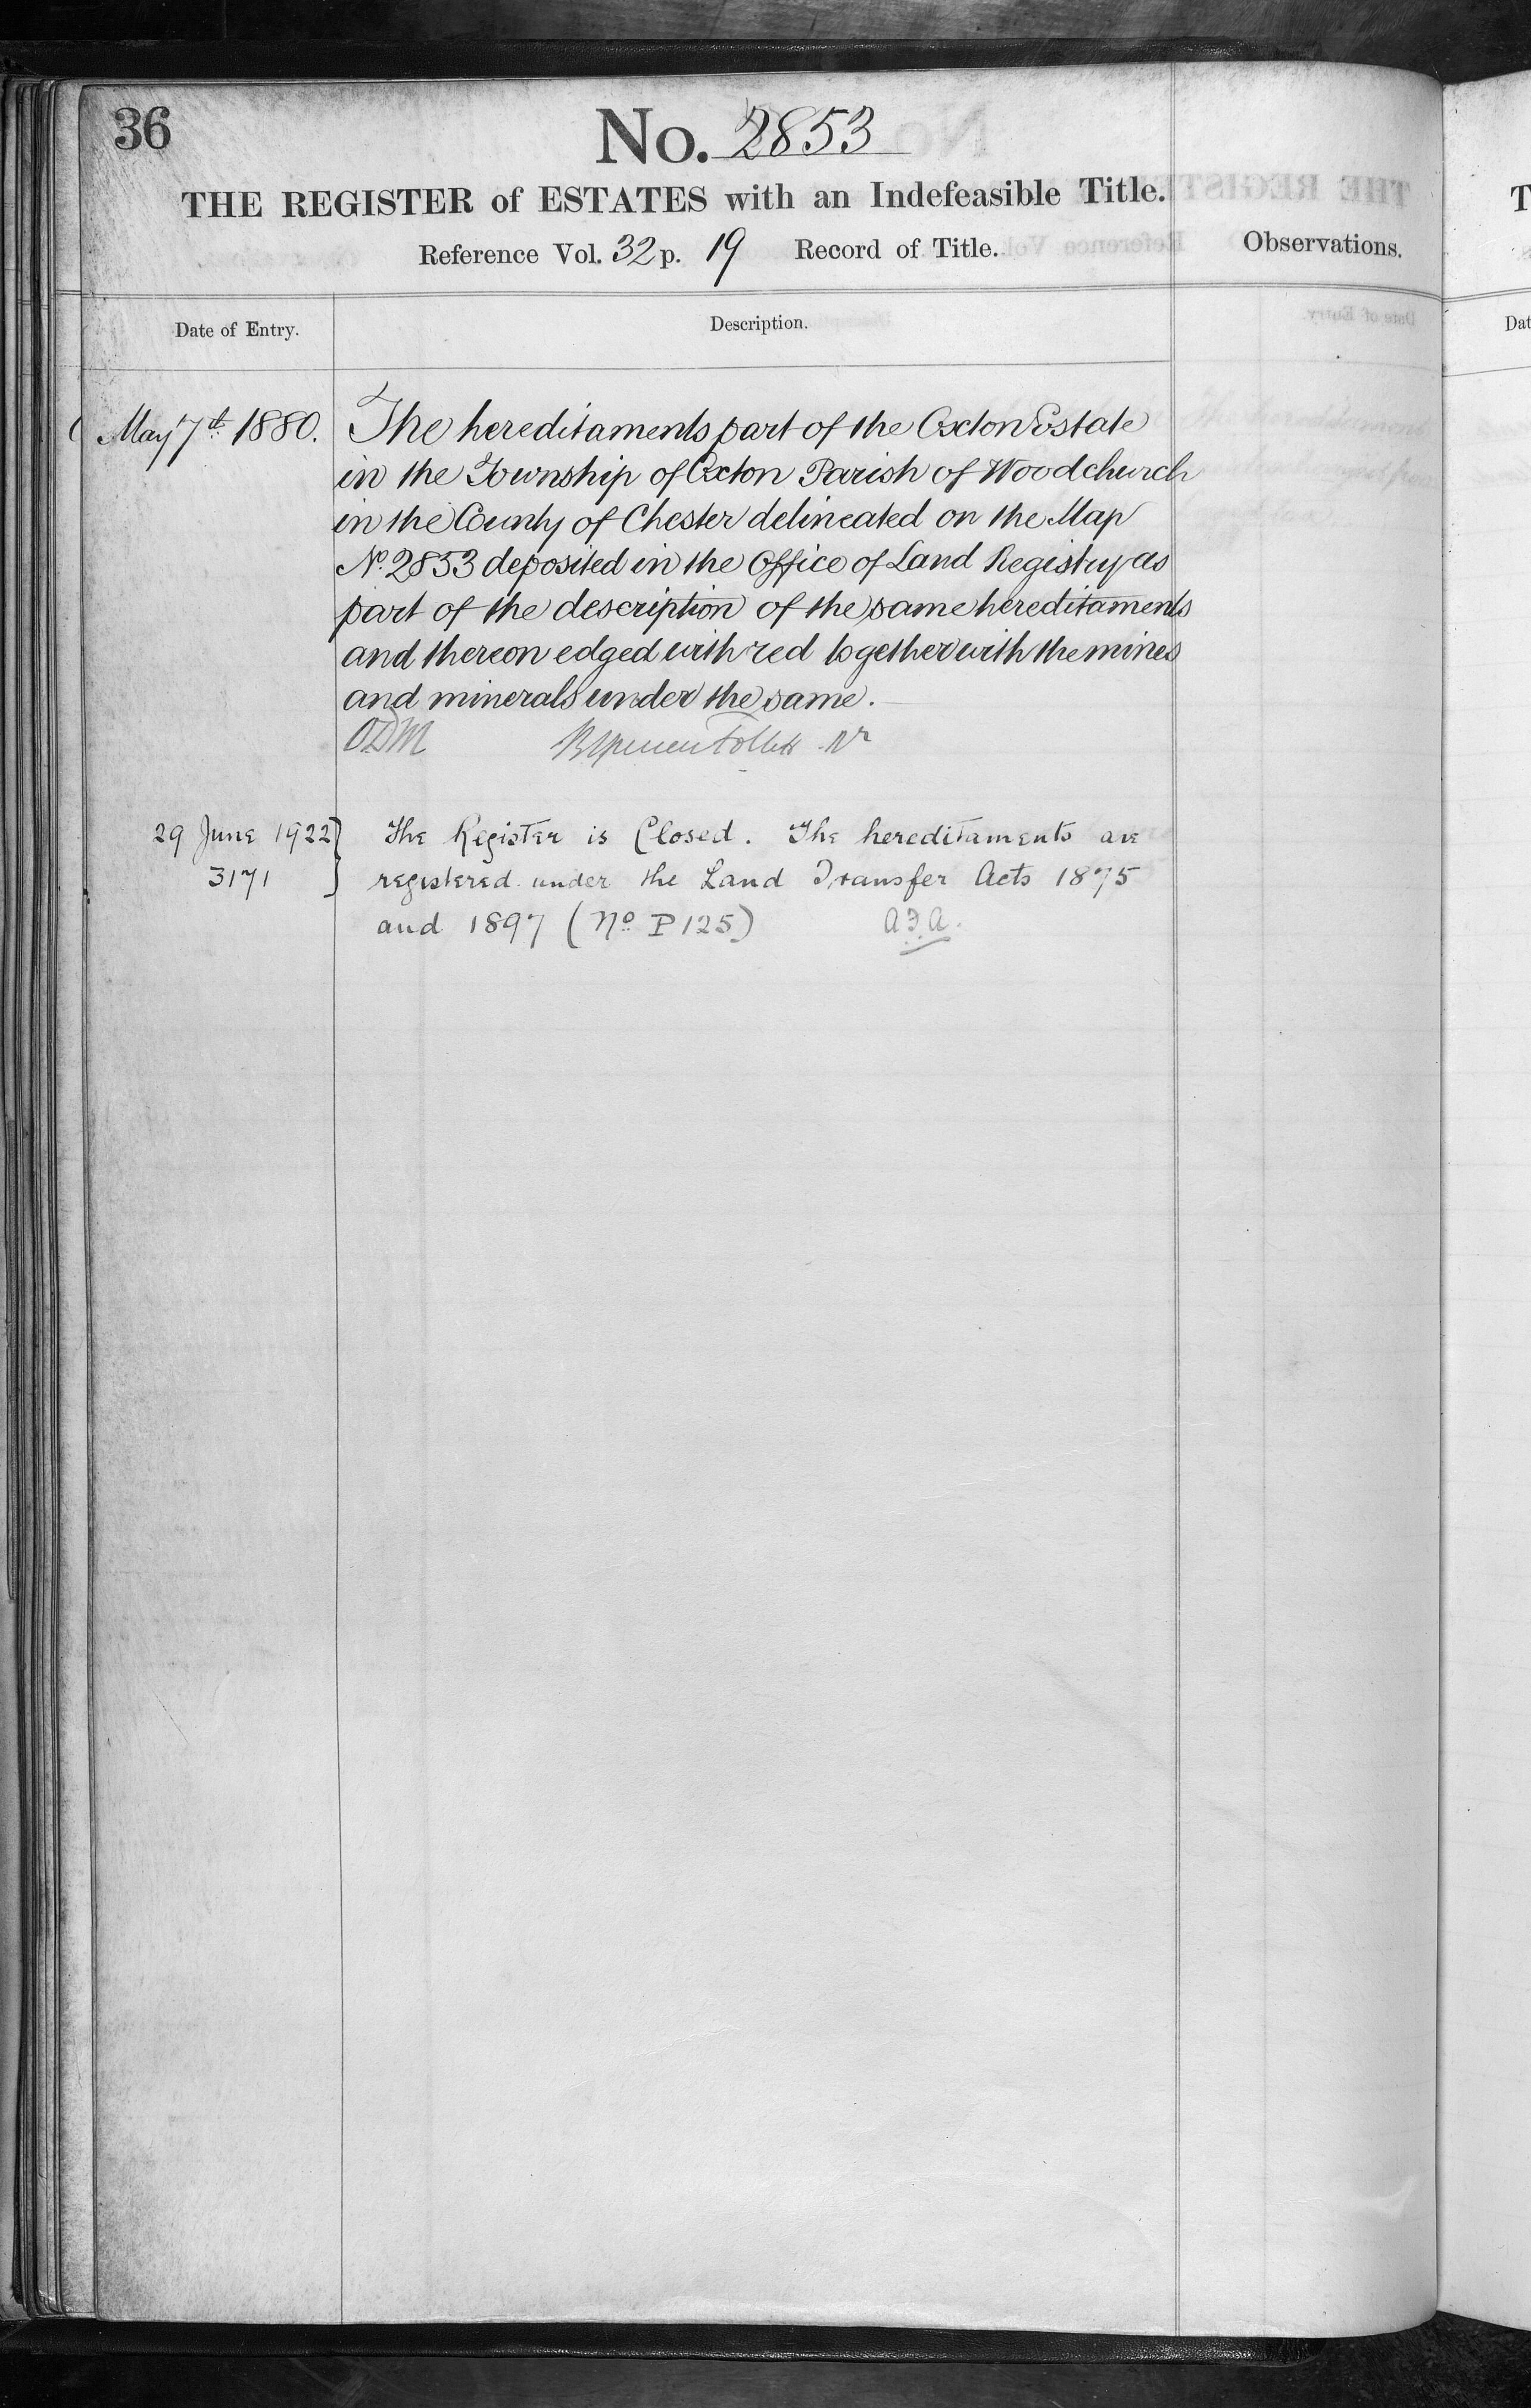 36
No. 2853
THE REGISTER of ESTATES with an Indefeasible Title.
Reference Vol. 32 p. 19 Record of Title.
Observations.
Date of Entry.
Description.
May 7th 1880.
The hereditaments part of the Oxton Estate
in the Township of Oxton Parish of Woodchurch
in the County of Chester delineated on the Map
No. 2853 deposited in the Office of Land Registry as
part of the description of the same hereditaments
and thereon edged with red together with the mines
and minerals under the same.
ODM
29 June 1922
3171
The Register is Closed. The hereditaments are
registered under the Land Transfer Acts 1875
and 1897 (No P125) A.F.A.